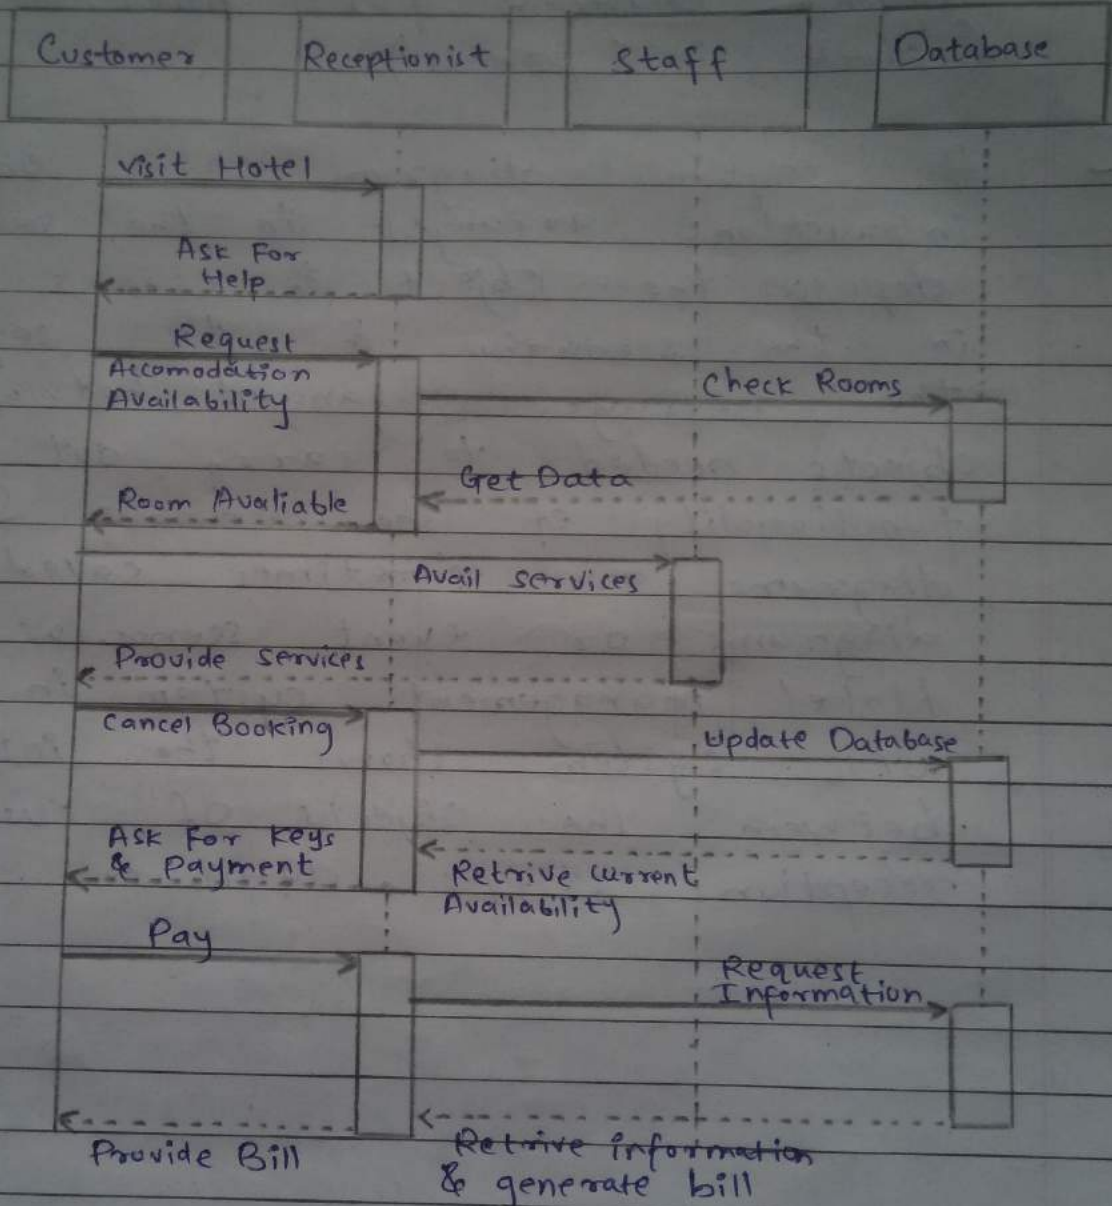 Customer
Receptionist
Staff
Database
Visit Hotel
Ask For
Help
Request
Accomodation
Availability
Check Rooms
Get Data
Room Avaliable
Avail services
Provide services
Cancel Booking
Update Database
Ask For keys
& Payment
Retrive current
Availability
Pay
Request
Information
Provide Bill
Retrive information
& generate bill